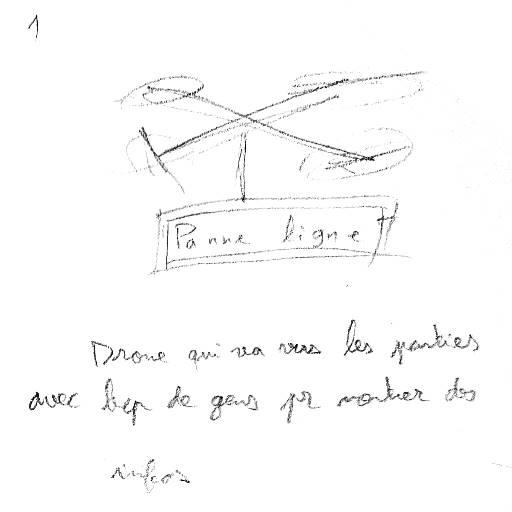 1
Panne ligne
Drone qui va vers les parties
avec bcp de gens pr montrer des
infos